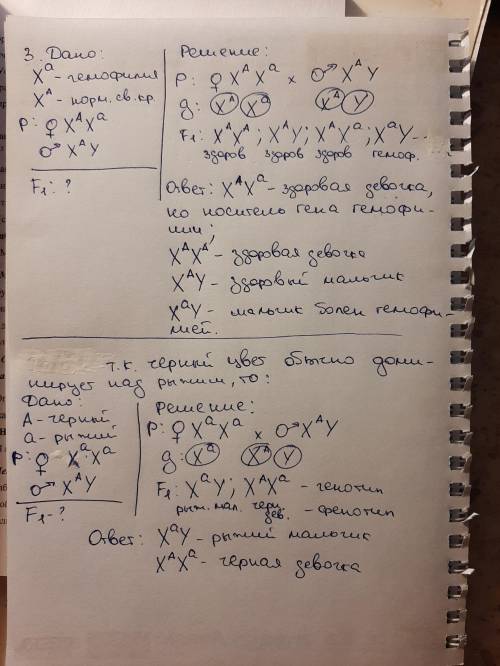 3. Дано:
Xᵃ - гемофилия
Xᴬ - норм. св. кр.
P: ♀ XᴬXᵃ
♂ XᴬY
F₁: ?
Решение:
P: ♀ XᴬXᵃ × ♂ XᴬY
g: Xᴬ Xᵃ Xᴬ Y
F₁: XᴬXᴬ; XᴬY; XᴬXᵃ; XᵃY
здоров здоров здоров гемоф.
Ответ: XᴬXᵃ - здоровая девочка,
но носитель гена гемофи-
лии;
XᴬXᴬ - здоровая девочка
XᴬY - здоровый мальчик
XᵃY - мальчик болен гемофи-
лией.
т.к. черный цвет обычно доми-
нирует над рыжим, то:
Дано:
A - черный
a - рыжий
P: ♀ XᵃXᵃ
♂ XᴬY
F₁ - ?
Решение:
P: ♀ XᵃXᵃ × ♂ XᴬY
g: Xᵃ Xᴬ Y
F₁: XᵃY; XᴬXᵃ - генотип
рыж. мал. черн. дев. - фенотип
Ответ: XᵃY - рыжий мальчик
XᴬXᵃ - черная девочка